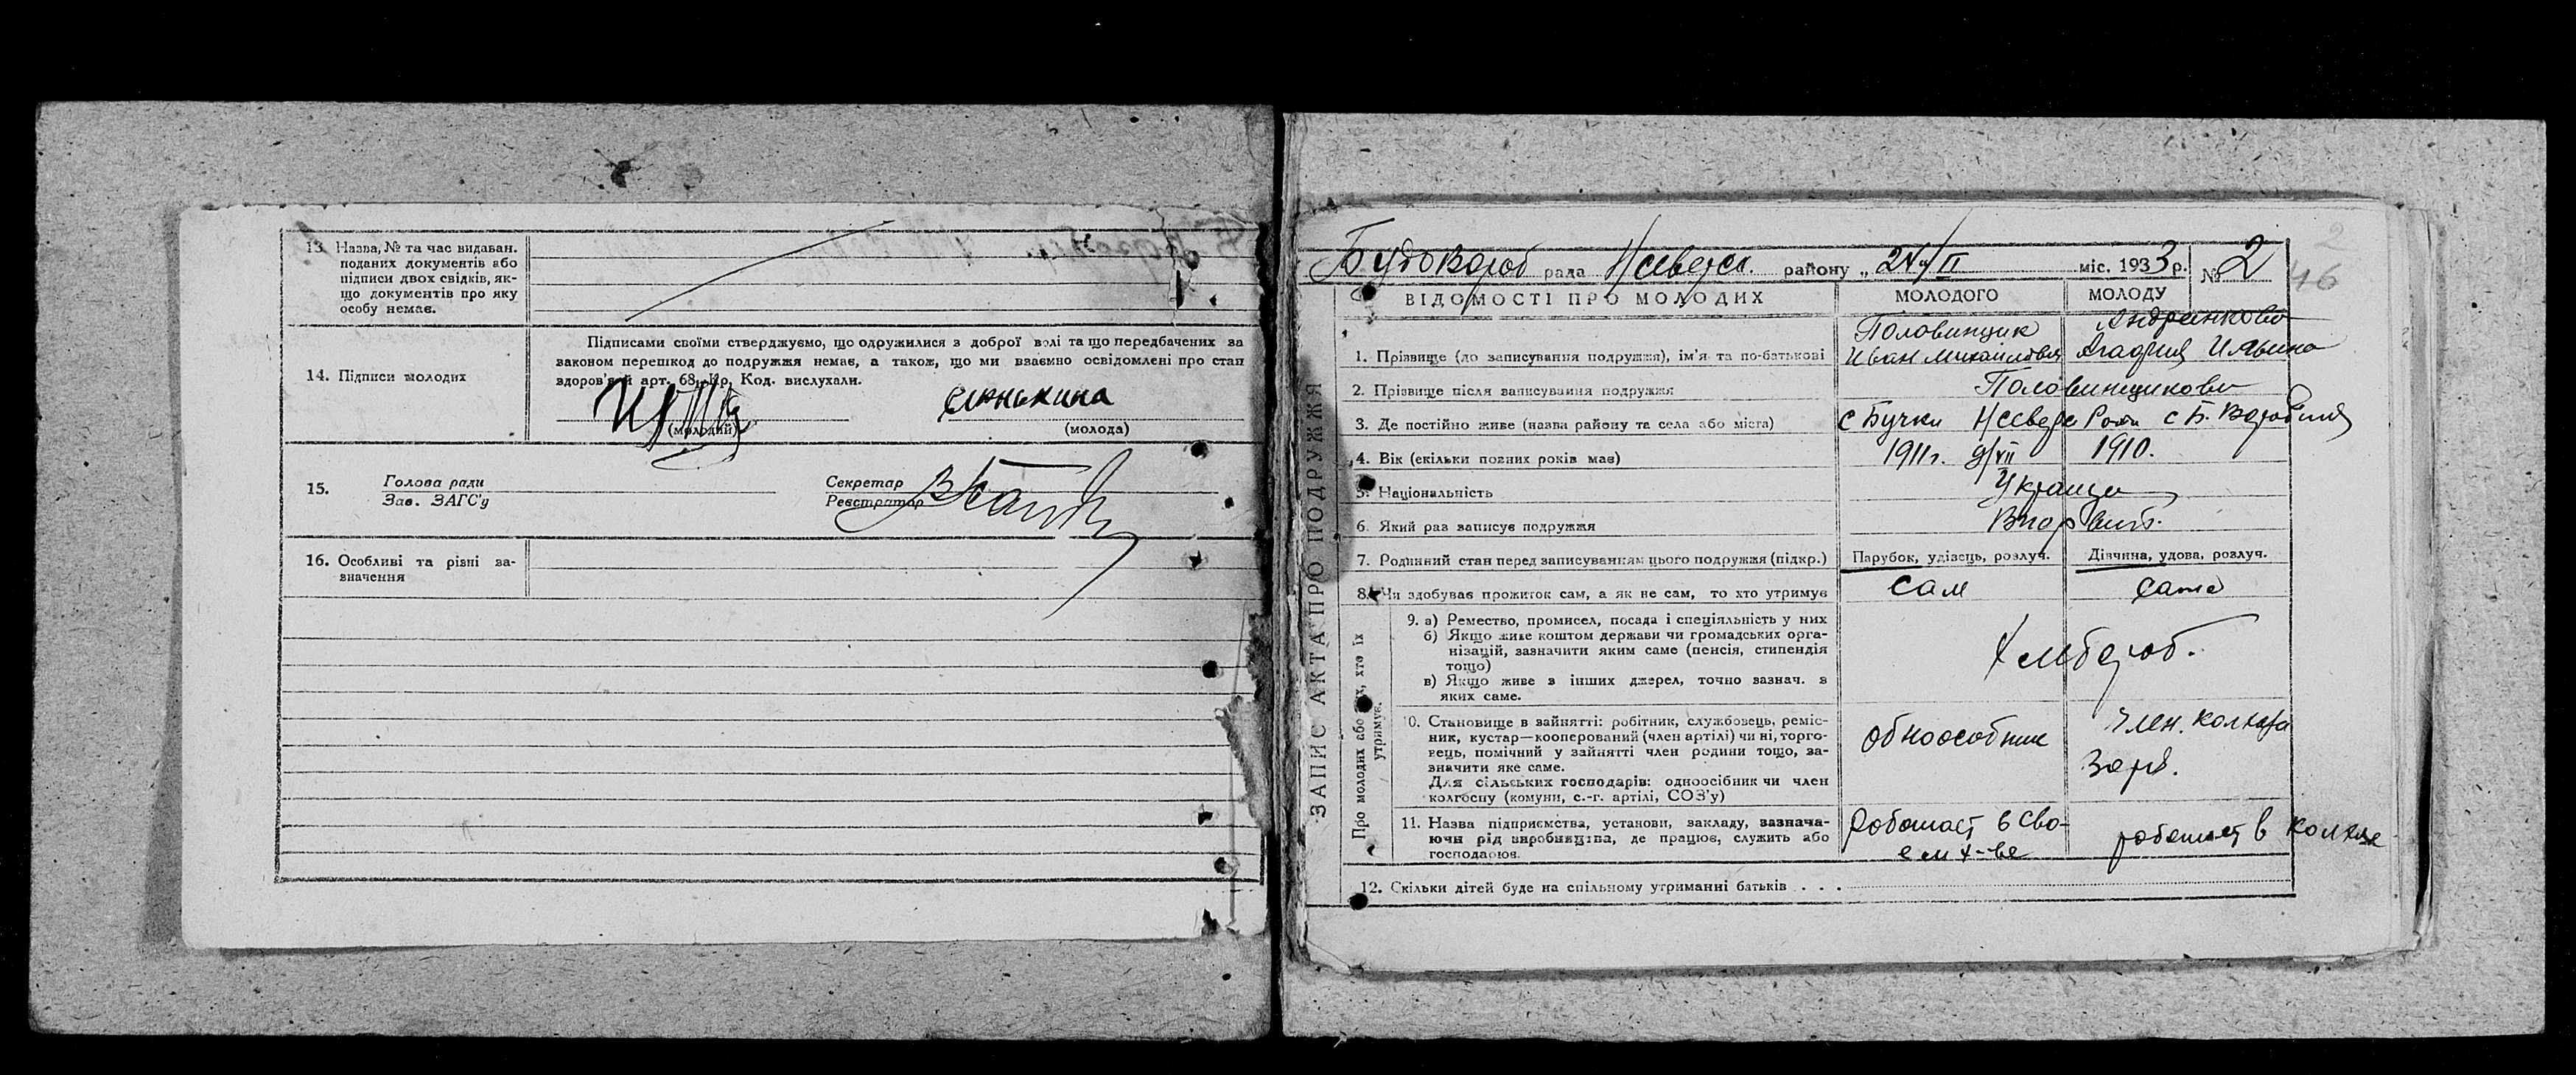 13. Назва, № та час видаван.
поданих документів або
підписи двох свідків, як-
що документів про яку
особу немає.
14. Підписи молодих
Підписами своїми стверджуємо, що одружилися з доброї волі та що передбачених за
законом перешкод до подружжя немає, а також, що ми взаємно освідомлені про стан
здоров'я й арт. 68, Кр. Код. вислухали.
(молодий)
(молода)
15.
Голова ради
Зав. ЗАГС'у
Секретар
Реєстратор
16. Особливі та різні за-
значення
2
46
рада
району „ 24 "/II міс. 1933 р. № 2
ЗАПИС АКТА ПРО ПОДРУЖЖЯ
ВІДОМОСТІ ПРО МОЛОДИХ
МОЛОДОГО
МОЛОДУ
1. Прізвище (до записування подружжя), ім'я та по-батькові
Половинщик
Иван Михайлович
Агафия Ильина
2. Прізвище після записування подружжя
Половинщикови
3. Де постійно живе (назва району та села або міста)
с Бучки
с Б. Воробиля
4. Вік (скільки повних років має)
1911 г. 9/VII
1910.
5. Національність
Украинцы
6. Який раз записує подружжя
7. Родинний стан перед записуванням цього подружжя (підкр.)
Парубок, удівець, розлуч.
Дівчина, удова, розлуч.
8. Чи здобуває прожиток сам, а як не сам, то хто утримує
сам
сама
Про молодих або тих, хто їх
утримує.
9. а) Ремество, промисел, посада і спеціяльність у них
б) Якщо живе коштом держави чи громадських орга-
нізацій, зазначити яким саме (пенсія, стипендія
тощо)
в) Якщо живе з інших джерел, точно зазнач. з
яких саме.
Хлебороб.
10. Становище в зайнятті: робітник, службовець, реміс-
ник, кустар—кооперований (член артілі) чи ні, торго-
вець, помічний у зайнятті член родини тощо, за-
значити яке саме.
Для сільських господарів: одноосібник чи член
колгоспу (комуни, с.-г. артілі, СОЗ'у)
одноособник
член. колхоза
Заря.
11. Назва підприємства, установи, закладу, зазнача-
ючи рід виробництва, де працює, служить або
господарює.
Работает в сво-
ем х-ве
работает в колхозе
12. Скільки дітей буде на спільному утриманні батьків . . .